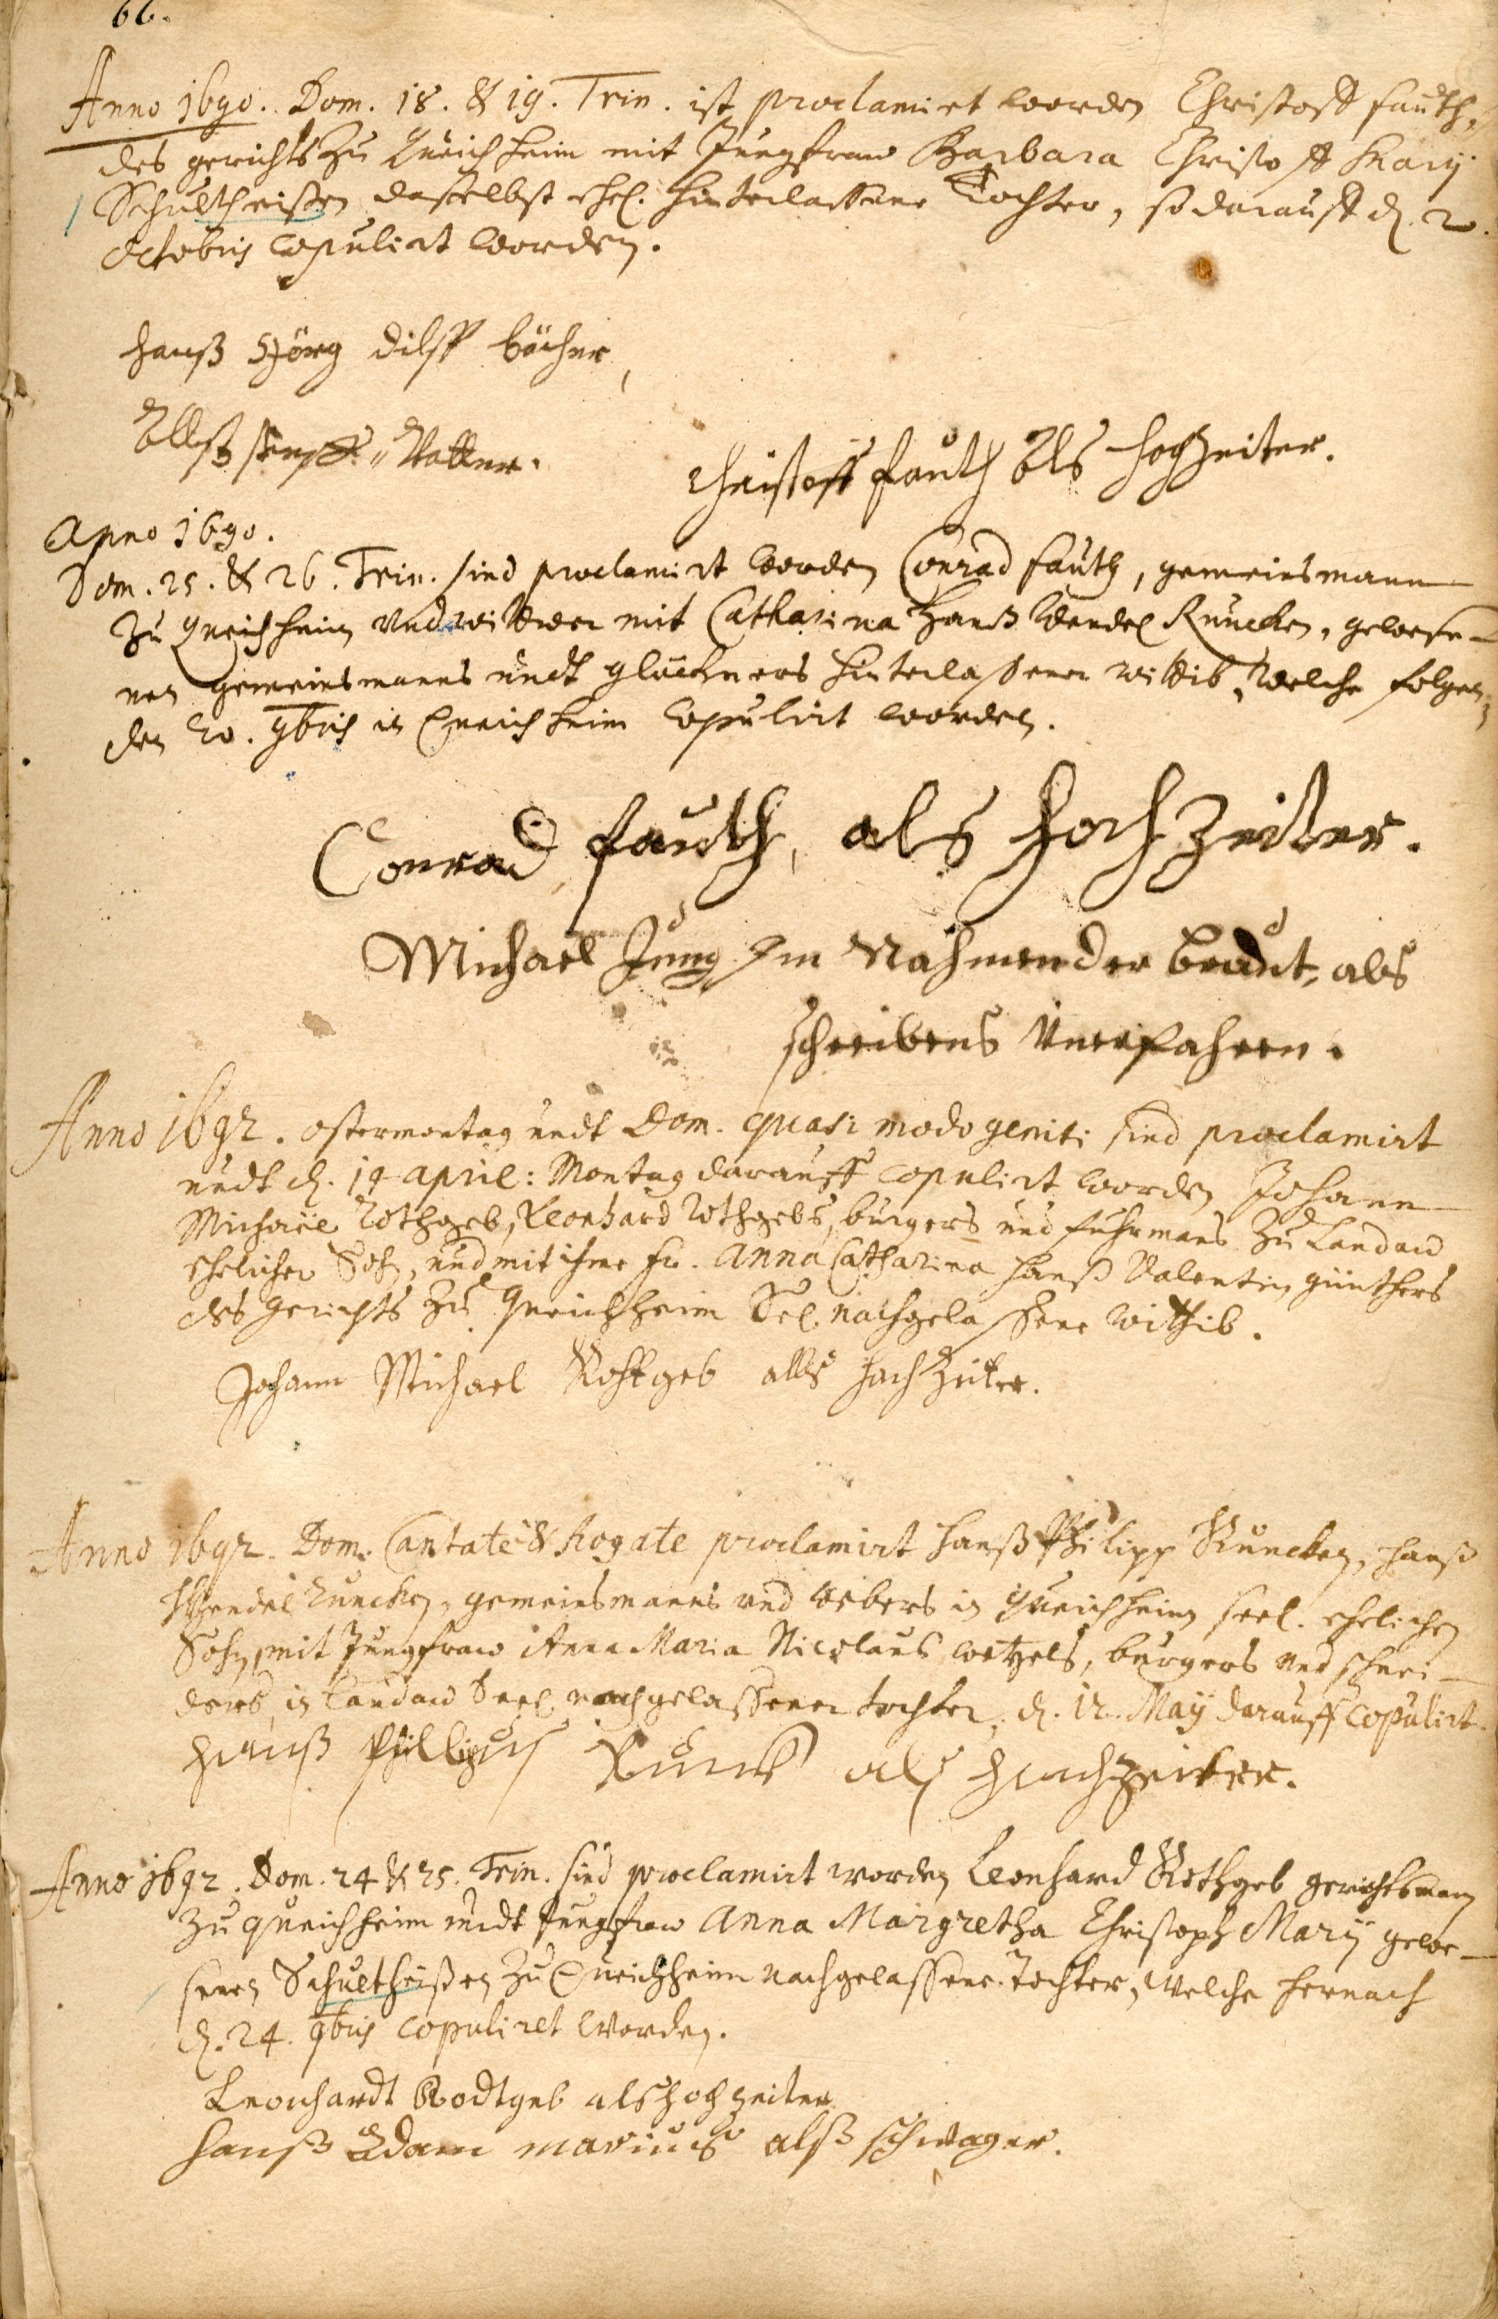 66.
Anno 1690. Dom. 18. & 19. Trin. ist proclamirt worden Christoff Fauth,
des gerichts zu Queichheim mit Jungfraw Barbara Christoff Marij
Schultheißen daselbst ehel. hinterlassene Tochter, so darauff d. 2.
Octobris copulirt worden.
Hanß Jörg
Allß Vatter.
Christoff Fauth Als Hochzeiter.
Anno 1690.
Dom. 25. & 26. Trin. sind proclamirt worden Conrad Fauth, gemeinsmann
zu Queichheim und wittwer mit Catharina Hanß Wendel Runcken, gewese-
nen gemeinsmanns undt glöckners hinterlaßener wittib, welche folgen-
den 20. 9bris in Queichheim copulirt worden.
Conrad Fauth, als Hochzeiter.
Michael Jung Im Nahmen der braut, als
schreibens Unerfahren.
Anno 1692. Ostermontag undt Dom. Quasi modo geniti sind proclamirt
undt d. 14 April: Montag darauff copulirt worden Johann
Michael Rothgeb, Leonhard Rothgebs, burgers und fuhrmans zu Landaw
ehelicher Sohn, und mit ihme fr. Anna Catharina Hanß Valentin günthers
des gerichts zu Queichheim Sel. nachgelassene Wittib.
Johann Michael Rohtgeb allß Hochzeiter.
Anno 1692. Dom. Cantate & Rogate proclamirt Hanß Philipp Runcken, Hanß
Wendel Runcken, gemeinsmanns und webers in Queichheim seel. ehelichen
Sohn, mit Jungfraw Anna Maria Nicolaus wetzels, burgers und schnei-
ders, in Landaw Seel. nachgelassener tochter, d. 12. Maÿ darauff copulirt.
Hanß Phillipus Runck als Hochzeiter.
Anno 1692. Dom. 24 & 25. Trin. sind proclamirt worden Leonhard Rothgeb gerichtsman
zu Queichheim undt Jungfraw Anna Margretha Christoph Marÿ gewe-
senen Schultheißen zu Queichheim nachgelassene Tochter, welche hernach
d. 24. 9bris copuliret worden.
Leonhardt Rodtgeb als Hochzeiter
Hanß Adam marius alß schwager.